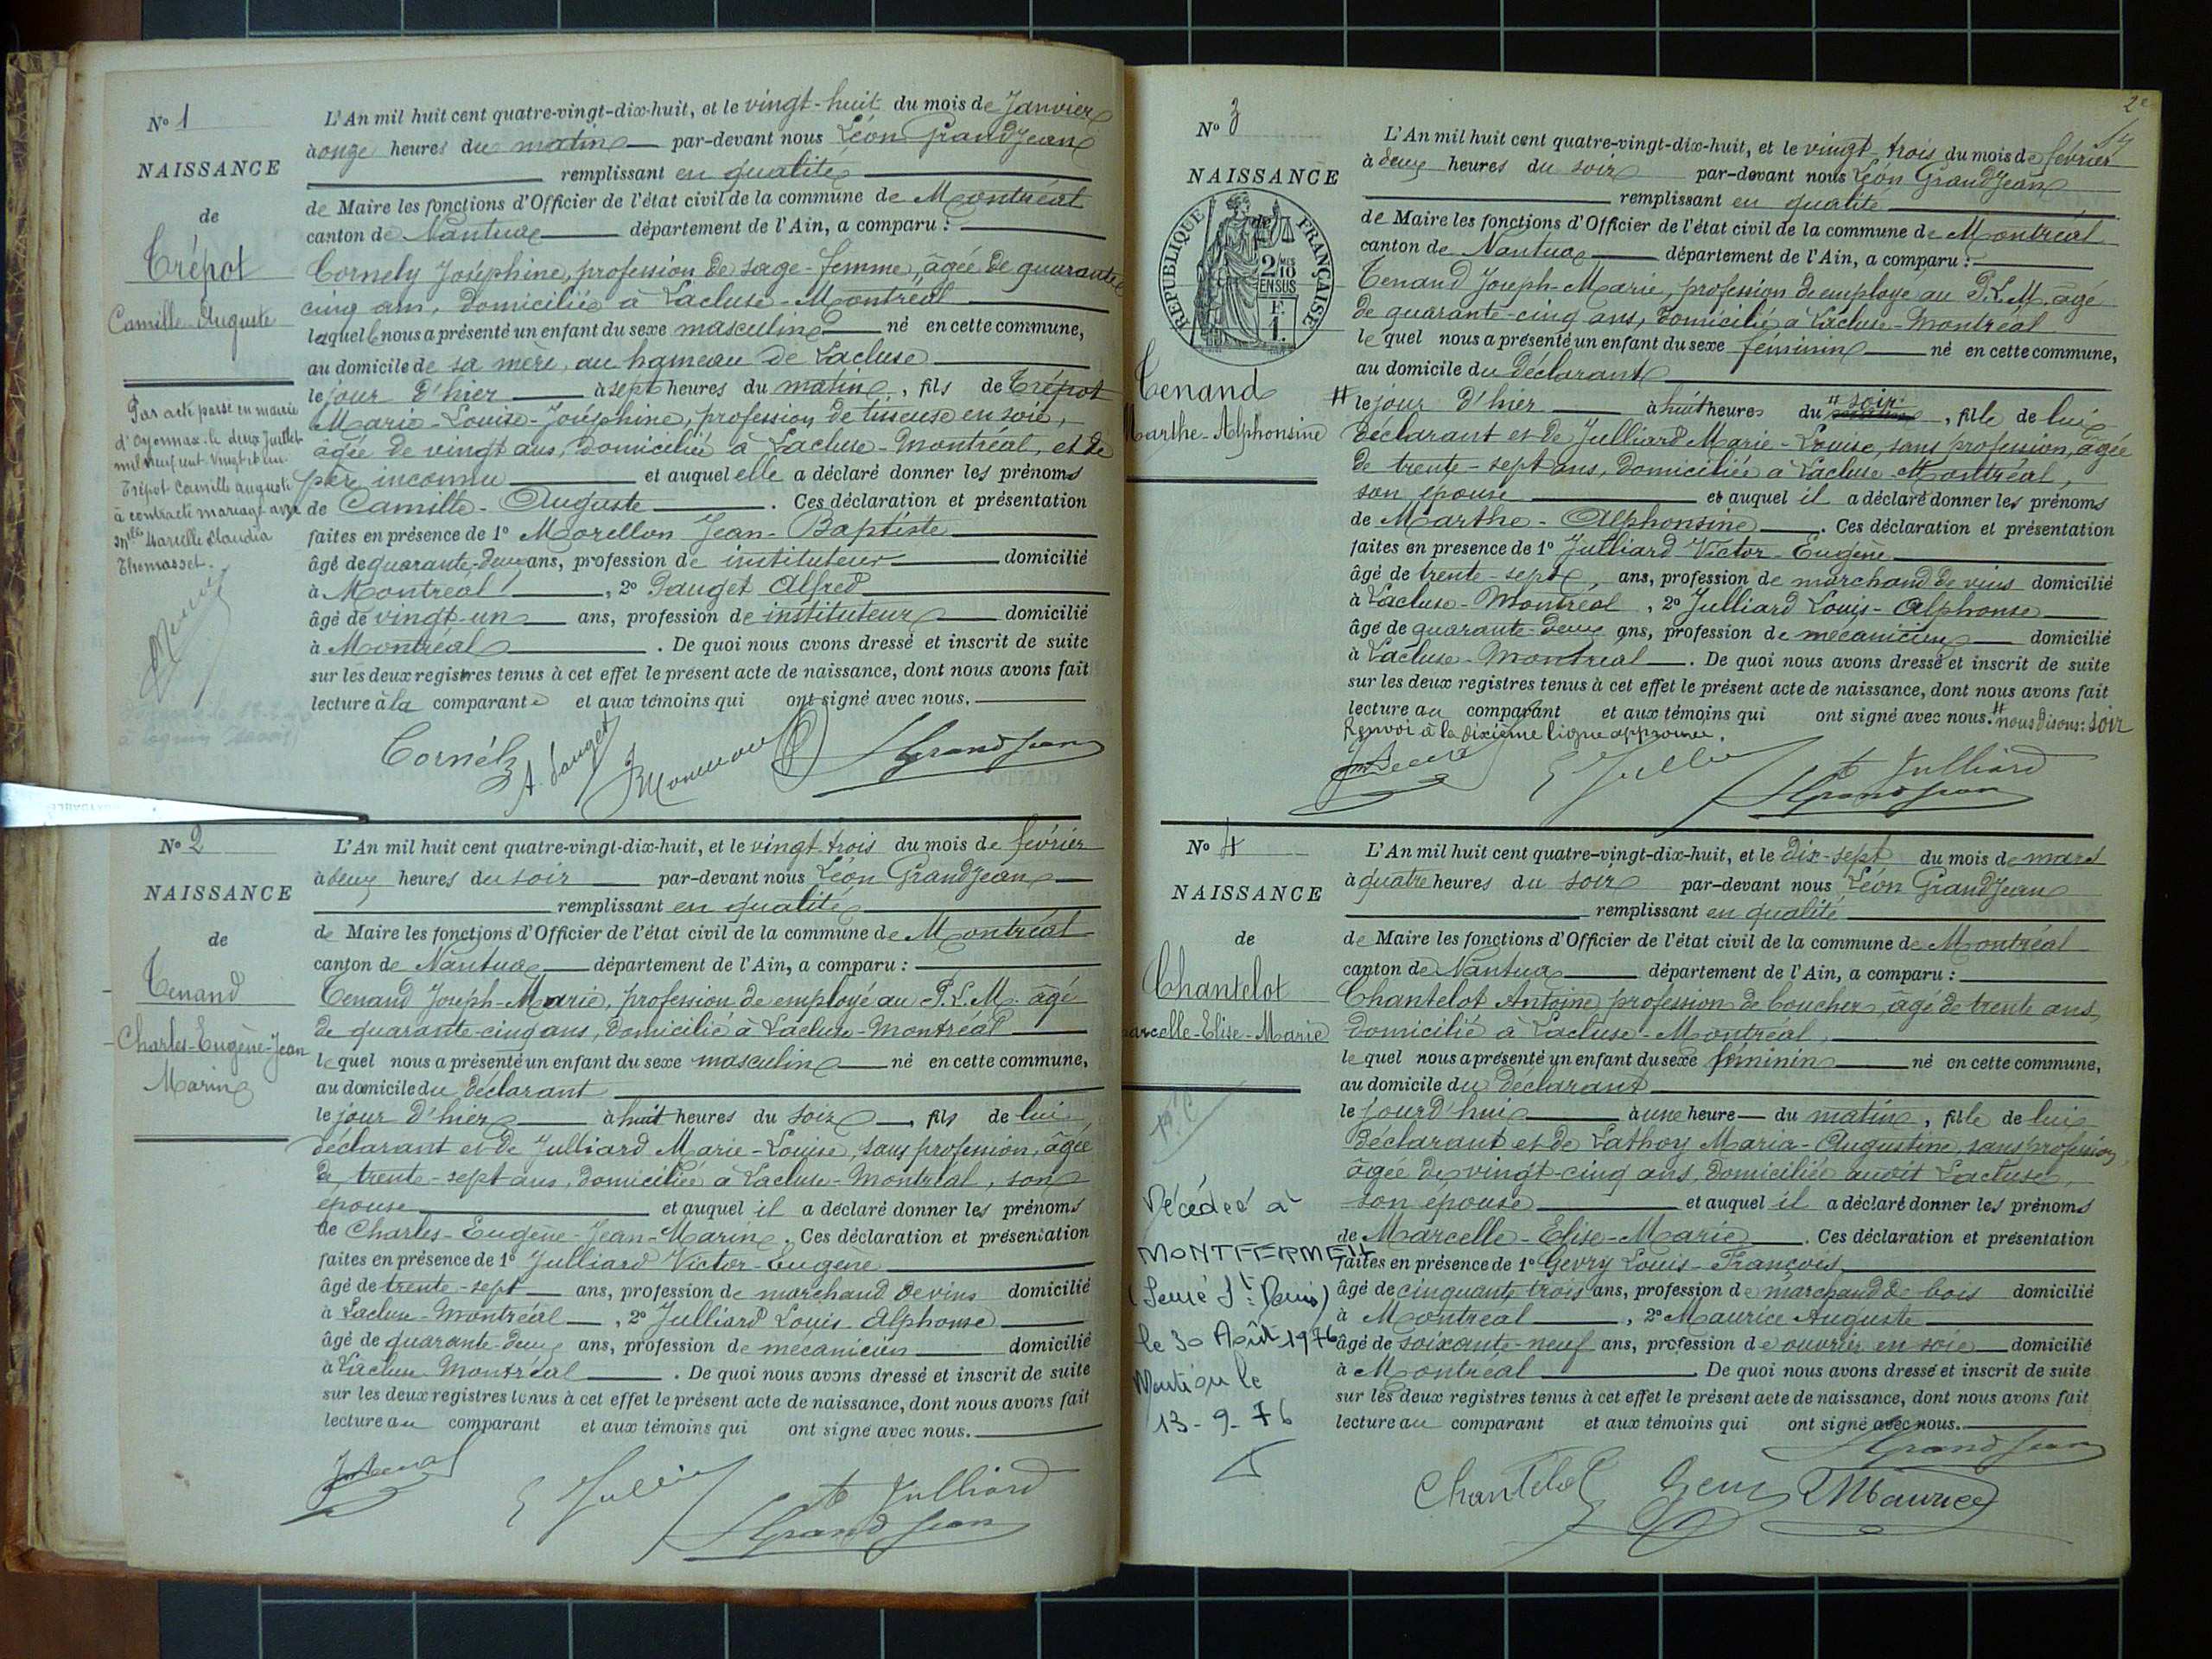 No 1
NAISSANCE
de
Trépot
Camille-Auguste
Par acte passé en mairie
d'Oyonnax le deux Juillet
mil neuf cent vingt et un
Trépot Camille Auguste
à contracté mariage avec
Melle Marcelle Claudia
Thomasset.
L'An mil huit cent quatre-vingt-dix-huit, et le vingt-huit du mois de Janvier
à onze heures du matin par-devant nous Léon Grandjean
remplissant en qualité
de Maire les fonctions d'Officier de l'état civil de la commune de Montréal
canton de Nantua département de l'Ain, a comparu :
Cornely Joséphine, profession de sage-femme, âgée de quarante
cinq ans, domiciliée à Lacluse-Montréal
laquelle nous a présenté un enfant du sexe masculin né en cette commune,
au domicile de sa mère, au hameau de Lacluse
le jour d'hier à sept heures du matin, fils de Trépot
Marie-Louise-Joséphine, profession de tisseuse en soie,
âgée de vingt ans, domiciliée à Lacluse-Montréal, et de
père inconnu et auquel elle a déclaré donner les prénoms
de Camille-Auguste. Ces déclaration et présentation
faites en présence de 1o Morellon Jean-Baptiste
âgé de quarante-deux ans, profession de instituteur domicilié
à Montréal, 2o Dauget Alfred
âgé de vingt-un ans, profession de instituteur domicilié
à Montréal. De quoi nous avons dressé et inscrit de suite
sur les deux registres tenus à cet effet le présent acte de naissance, dont nous avons fait
lecture à la comparante et aux témoins qui ont signé avec nous.
Cornély A. Dauget LGrandjean
No 2
NAISSANCE
de
Tenand
Charles-Eugène-Jean
Marin
L'An mil huit cent quatre-vingt-dix-huit, et le vingt-trois du mois de février
à deux heures du soir par-devant nous Léon Grandjean
remplissant en qualité
de Maire les fonctions d'Officier de l'état civil de la commune de Montréal
canton de Nantua département de l'Ain, a comparu :
Tenand Joseph-Marie, profession de employé au P.L.M. âgé
de quarante-cinq ans, domicilié à Lacluse-Montréal
lequel nous a présenté un enfant du sexe masculin né en cette commune,
au domicile du déclarant
le jour d'hier à huit heures du soir, fils de lui
déclarant et de Julliard Marie-Louise, sans profession, âgée
de trente-sept ans, domiciliée à Lacluse-Montréal, son
épouse et auquel il a déclaré donner les prénoms
de Charles-Eugène-Jean-Marin. Ces déclaration et présentation
faites en présence de 1o Julliard Victor-Eugène
âgé de trente-sept ans, profession de marchand de vins domicilié
à Lacluse-Montréal, 2o Julliard Louis-Alphonse
âgé de quarante-deux ans, profession de mécanicien domicilié
à Lacluse Montréal. De quoi nous avons dressé et inscrit de suite
sur les deux registres tenus à cet effet le présent acte de naissance, dont nous avons fait
lecture au comparant et aux témoins qui ont signé avec nous.
Julliard
LGrandjean
2e
No 3
NAISSANCE
de
RÉPUBLIQUE FRANÇAISE
2 MES
10
EN SUS
Tenand
Marthe-Alphonsine
L'An mil huit cent quatre-vingt-dix-huit, et le vingt-trois du mois de février
à deux heures du soir par-devant nous Léon Grandjean
remplissant en qualité
de Maire les fonctions d'Officier de l'état civil de la commune de Montréal
canton de Nantua département de l'Ain, a comparu :
Tenand Joseph-Marie, profession de employé au P.L.M. âgé
de quarante-cinq ans, domicilié à Lacluse-Montréal
lequel nous a présenté un enfant du sexe féminin né en cette commune,
au domicile du déclarant
# le jour d'hier à huit heures du # soir, fille de lui
déclarant et de Julliard Marie-Louise, sans profession, âgée
de trente-sept ans, domiciliée à Lacluse-Montréal,
son épouse et auquel il a déclaré donner les prénoms
de Marthe-Alphonsine. Ces déclaration et présentation
faites en présence de 1o Julliard Victor-Eugène
âgé de trente-sept, ans, profession de marchand de vins domicilié
à Lacluse-Montréal, 2o Julliard Louis-Alphonse
âgé de quarante-deux ans, profession de mécanicien domicilié
à Lacluse-Montréal. De quoi nous avons dressé et inscrit de suite
sur les deux registres tenus à cet effet le présent acte de naissance, dont nous avons fait
lecture au comparant et aux témoins qui ont signé avec nous. # nous disons: soir
Renvoi à la dixième ligne approuvé.
Julliard
LGrandjean
No 4
NAISSANCE
de
Chantelot
Marcelle-Elise-Marie
Décédée à
MONTFERMEIL
(Seine St Denis)
le 30 Août 1976
Mention le
13-9-76
L'An mil huit cent quatre-vingt-dix-huit, et le dix-sept du mois de mars
à quatre heures du soir par-devant nous Léon Grandjean
remplissant en qualité
de Maire les fonctions d'Officier de l'état civil de la commune de Montréal
canton de Nantua département de l'Ain, a comparu :
Chantelot Antoine, profession de boucher, âgé de trente ans,
domicilié à Lacluse-Montréal,
lequel nous a présenté un enfant du sexe féminin né en cette commune,
au domicile du déclarant
le jourd'hui à une heure du matin, fille de lui
déclarant et de Lathoy Maria-Augustine, sans profession,
âgée de vingt-cinq ans, domiciliée audit Lacluse,
son épouse et auquel il a déclaré donner les prénoms
de Marcelle-Elise-Marie. Ces déclaration et présentation
faites en présence de 1o Gevry Louis-François
âgé de cinquante trois ans, profession de marchand de bois domicilié
à Montréal, 2o Maurice Auguste
âgé de soixante-neuf ans, profession de ouvrier en soie domicilié
à Montréal. De quoi nous avons dressé et inscrit de suite
sur les deux registres tenus à cet effet le présent acte de naissance, dont nous avons fait
lecture au comparant et aux témoins qui ont signé avec nous.
LGrandjean
Chantelot Maurice